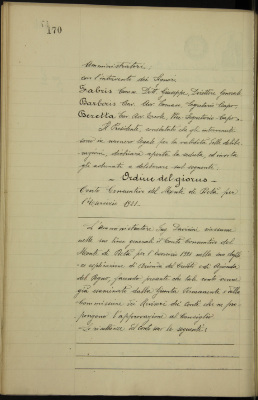 170
Amministratori:
con l'intervento dei Signori
Fabris Comm. Dott. Giuseppe, Direttore Generale
Barbaro Cav. Avv. Segretario Capo
Beretta Cav. Vice Segretario Capo
Il Presidente, constatato che gli intervenuti
sono in numero legale per la validità delle delibe-
razioni, dichiara aperta la seduta, ed invita
gli adunati a deliberare sul seguente:
- Ordine del giorno -
Conto Consuntivo del Monte di Pietà per
l'Esercizio 1921.
L'Amministratore Ing. riassume
nelle sue linee generali il Conto Consuntivo del
Monte di Pietà per l'Esercizio 1921 nelle sue duplici
del Regno, facendo presente che tale conto venne
già esaminato dalla Giunta Permanente e dalla
Commissione dei Revisori dei conti che ne pro-
pongono l'approvazione al Consiglio.
Le risultanze del Conto sono le seguenti: